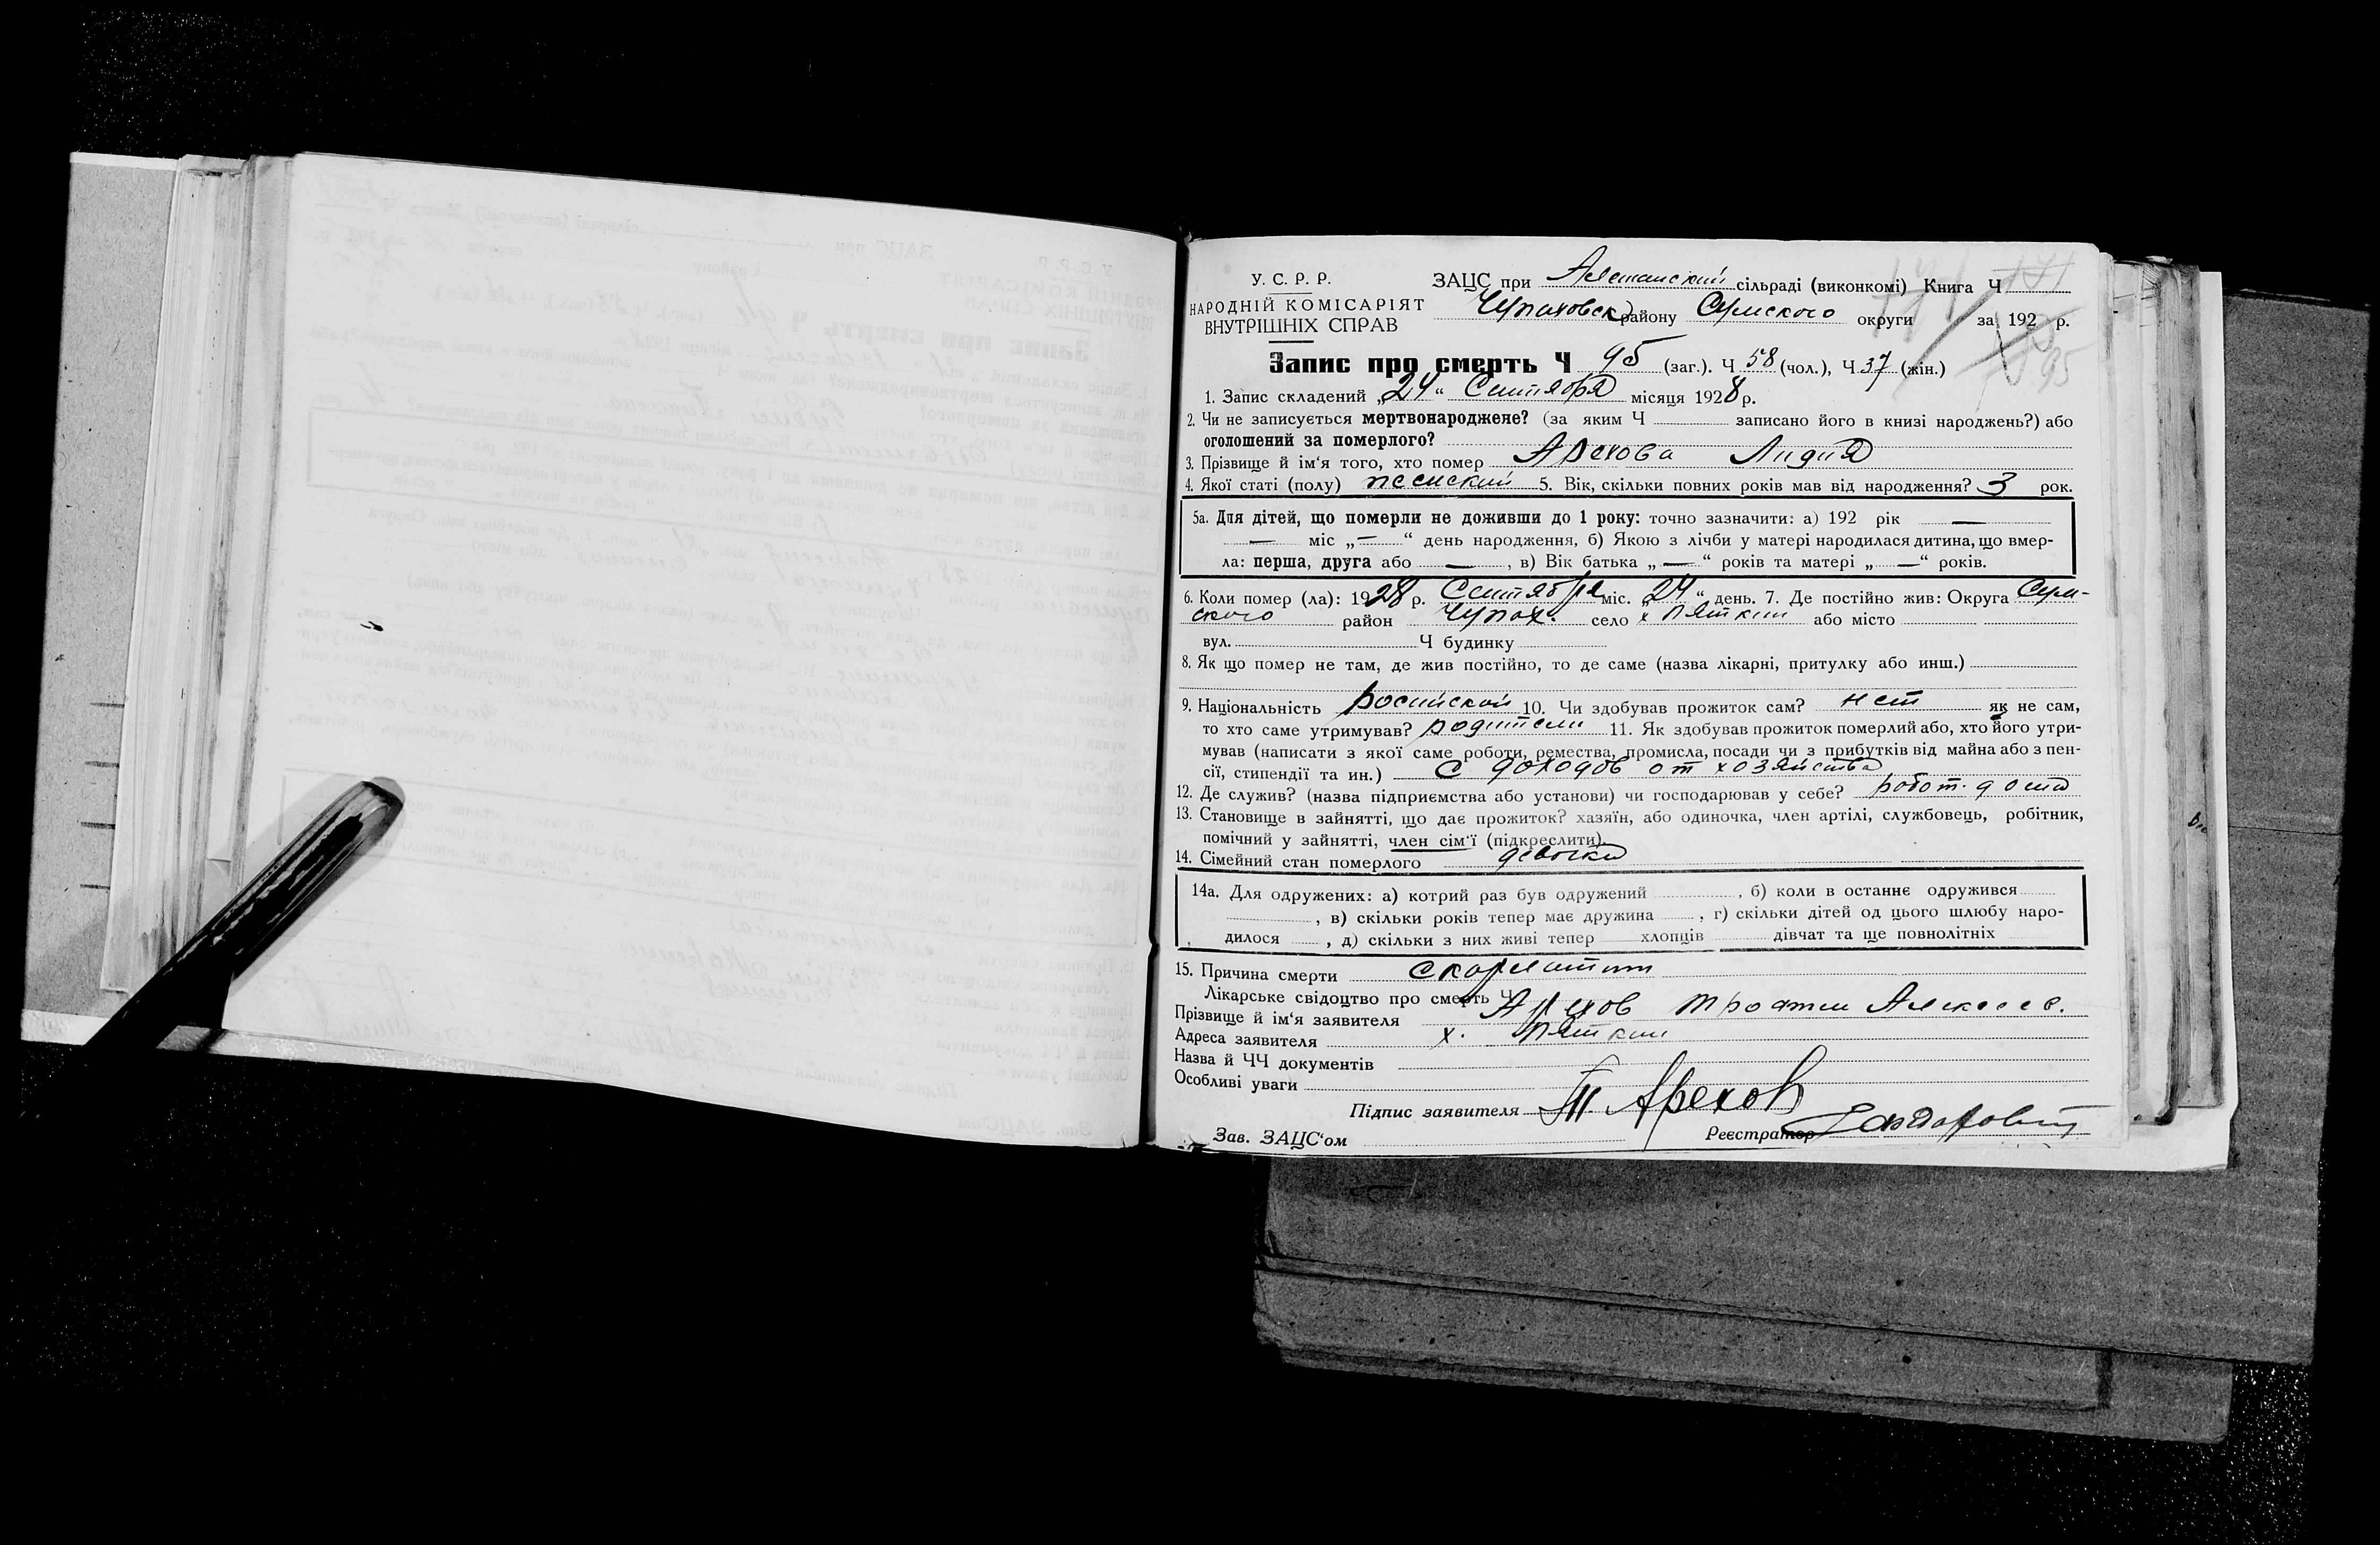 У. С. Р. Р.
НАРОДНІЙ КОМІСАРІЯТ
ВНУТРІШНІХ СПРАВ
ЗАЦС при сільраді (виконкомі) Книга Ч 171
Чупаховск району Сумского округи за 192 р.
95
Запис про смерть Ч 95 (заг.). Ч 58 (чол.), Ч 37 (жін.)
1. Запис складений „24“ Сентября місяця 1928 р.
2. Чи не записується мертвонароджене? (за яким Ч записано його в книзі народжень?) або
оголошений за померлого?
3. Прізвище й ім‘я того, хто помер Арехова Лидия
4. Якої статі (полу) женский 5. Вік, скільки повних років мав від народження? 3 рок.
5а. Для дітей, що померли не доживши до 1 року: точно зазначити: а) 192 рік —
— міс „—“ день народження, б) Якою з лічби у матері народилася дитина, що вмер-
ла: перша, друга або —, в) Вік батька „—“ років та матері „—“ років.
6. Коли помер (ла): 1928 р. Сентября міс. „24“ день. 7. Де постійно жив: Округа Сум-
ского район Чупах. село х Пяткин або місто
вул. Ч будинку
8. Як що помер не там, де жив постійно, то де саме (назва лікарні, притулку або инш.)
9. Національність 10. Чи здобував прожиток сам? нет як не сам,
то хто саме утримував? родители 11. Як здобував прожиток померлий або, хто його утри-
мував (написати з якої саме роботи, ремества, промисла, посади чи з прибутків від майна або з пен-
сії, стипендії та ин.) С доходов от хозяйства
12. Де служив? (назва підприємства або установи) чи господарював у себе? робот. дома
13. Становище в зайнятті, що дає прожиток? хазяїн, або одиночка, член артілі, службовець, робітник,
помічний у зайнятті, член сім‘ї (підкреслити).
14. Сімейний стан померлого девочка
14а. Для одружених: а) котрий раз був одружений , б) коли в останнє одружився
, в) скільки років тепер має дружина , г) скільки дітей од цього шлюбу наро-
дилося , д) скільки з них живі тепер хлопців дівчат та ще повнолітніх
15. Причина смерти скарлатин
Лікарське свідоцтво про смерть Ч
Прізвище й ім‘я заявителя Арехов Алексеев.
Адреса заявителя х. Пяткин
Назва й ЧЧ документів
Особливі уваги
Підпис заявителя Т. Арехов
Зав. ЗАЦС‘ом Реєстратор